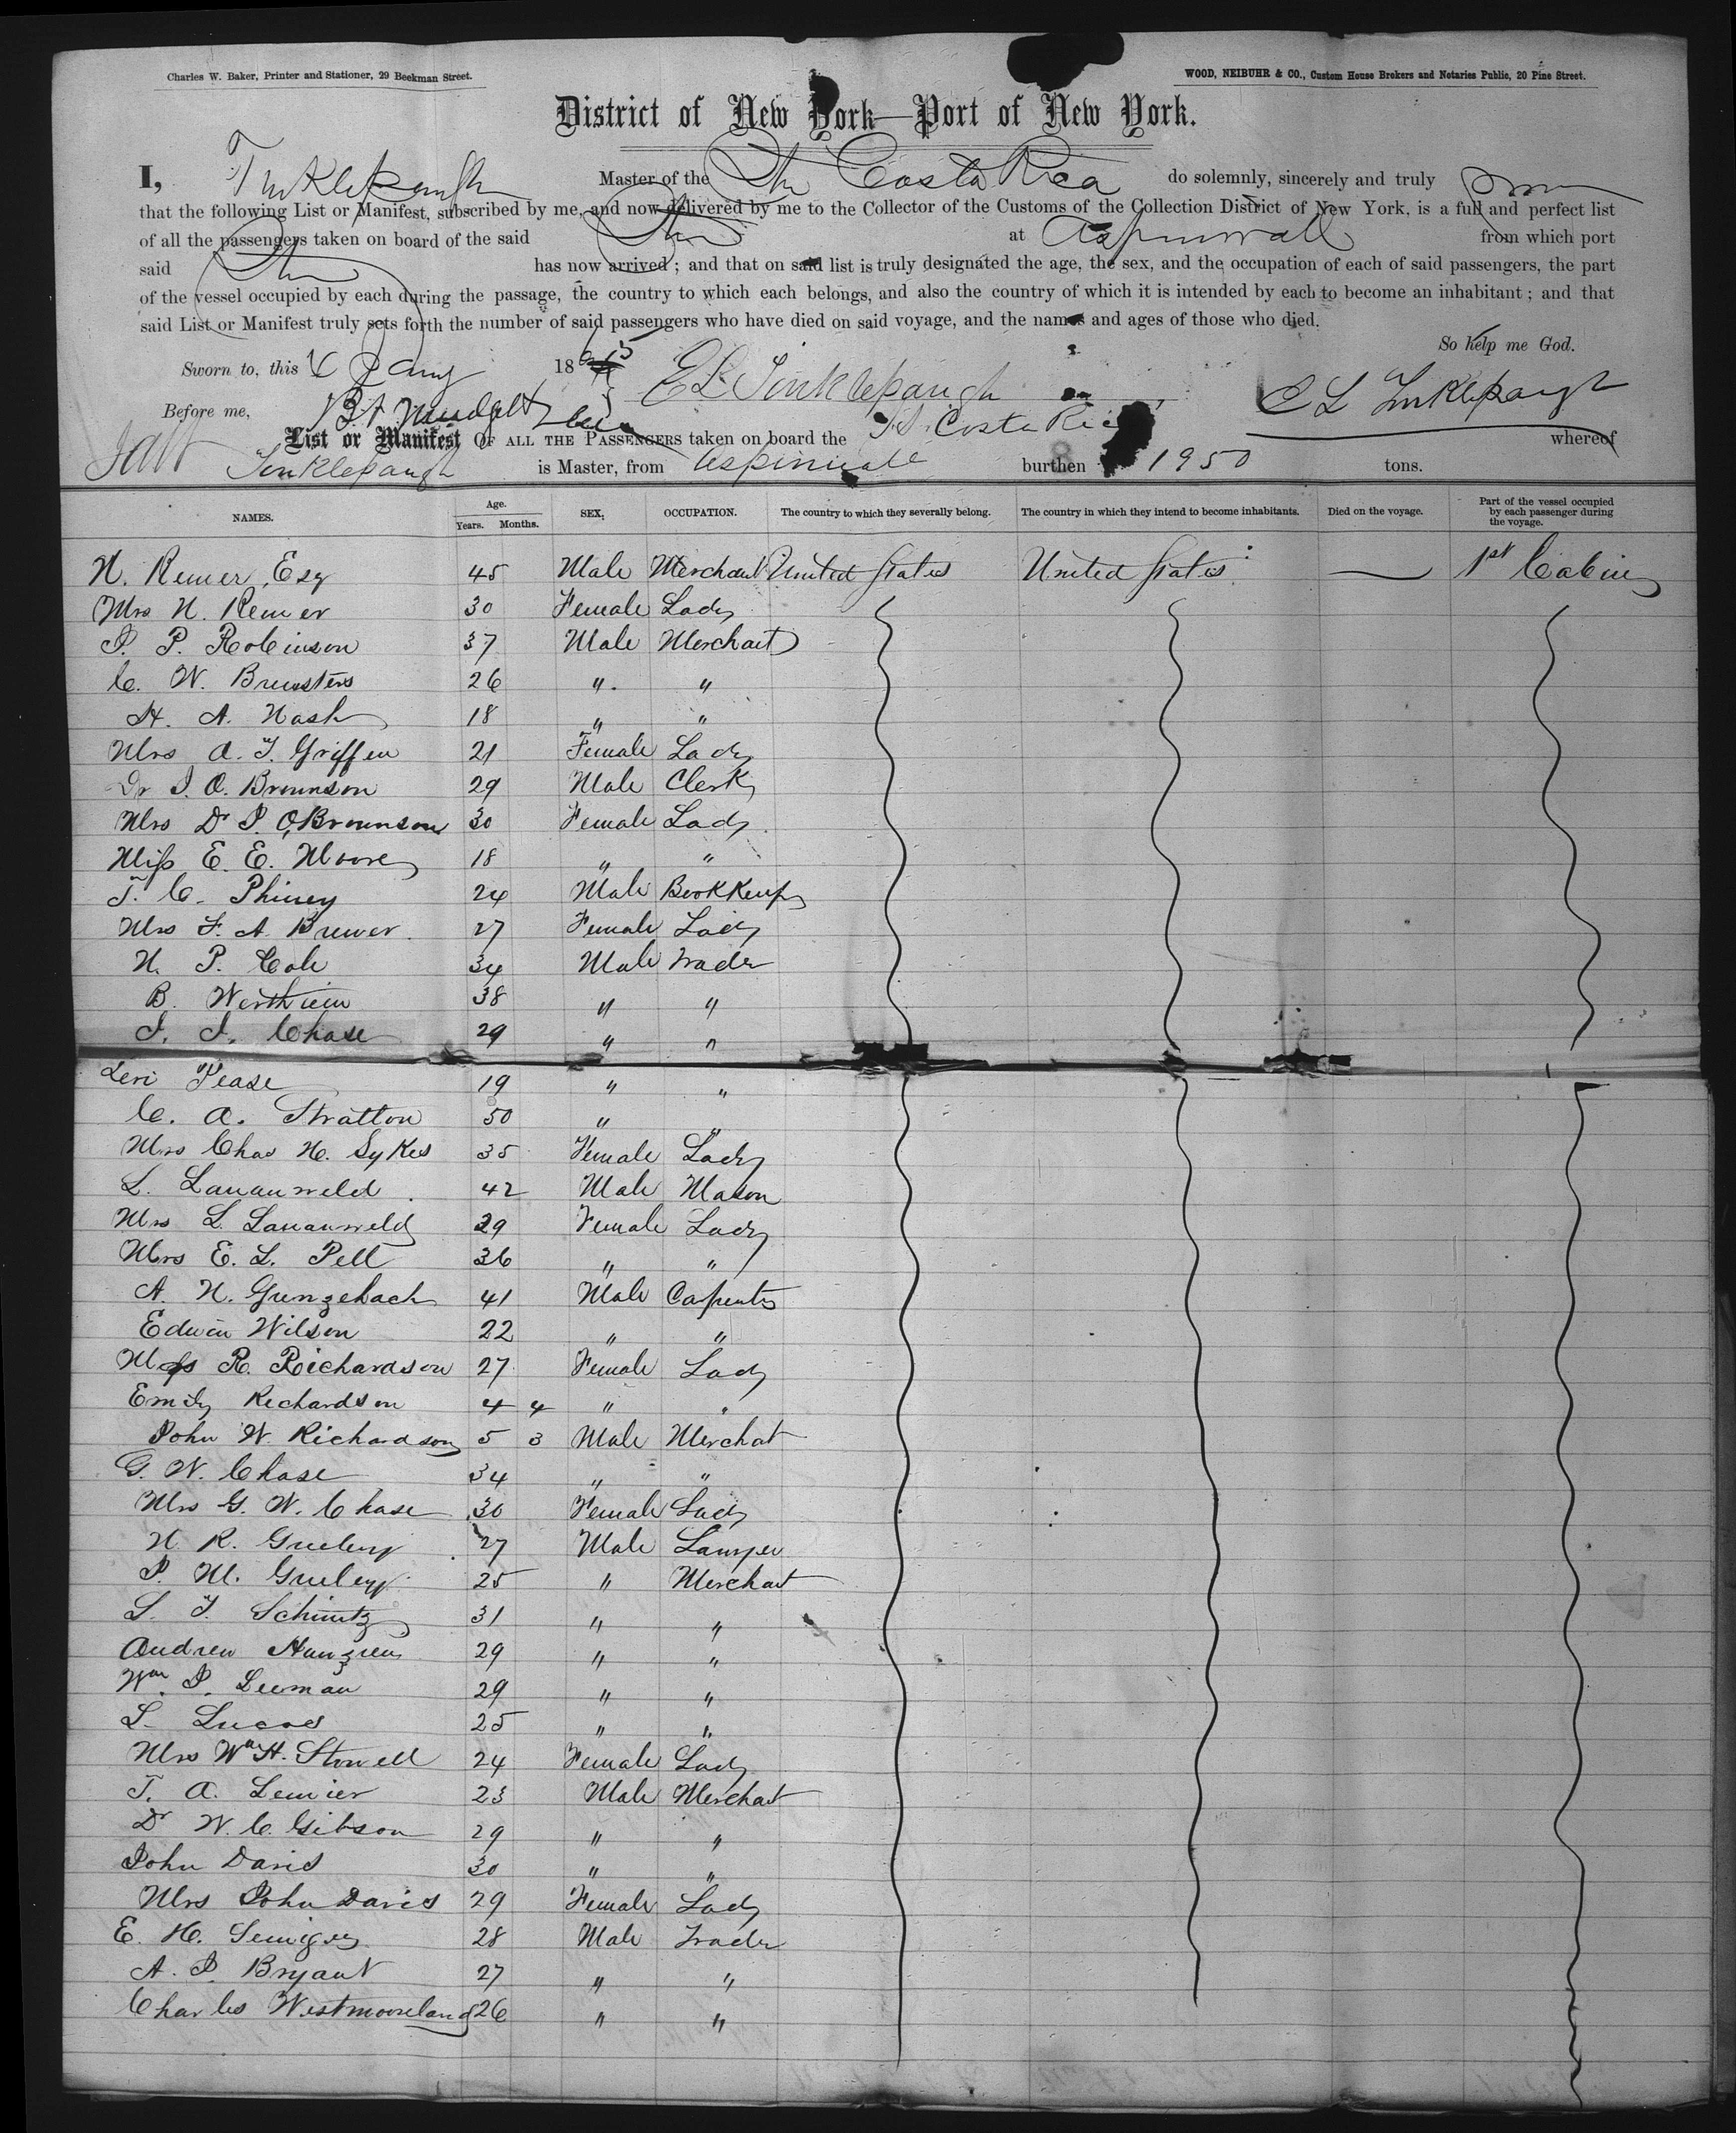 Charles W. Baker, Printer and Stationer, 29 Beekman Street.
WOOD, NEIBUHR & CO., Custom House Brokers and Notaries Public, 20 Pine Street.
District of New York—Port of New York.
I, Tinklepaugh Master of the Costa Rica do solemnly, sincerely and truly
that the following List or Manifest, subscribed by me, and now delivered by me to the Collector of the Customs of the Collection District of New York, is a full and perfect list
of all the passengers taken on board of the said at Aspinwall from which port
said has now arrived; and that on said list is truly designated the age, the sex, and the occupation of each of said passengers, the part
of the vessel occupied by each during the passage, the country to which each belongs, and also the country of which it is intended by each to become an inhabitant; and that
said List or Manifest truly sets forth the number of said passengers who have died on said voyage, and the names and ages of those who died.
So help me God.
Sworn to, this 186
E L Tinklepaugh
E L Tinklepaugh
Before me,
List or Manifest OF ALL THE PASSENGERS taken on board the Costa Rica whereof
Tinklepaugh is Master, from Aspinwall burthen 1950 tons.
NAMES. Age. Years. Months. SEX. OCCUPATION. The country to which they severally belong. The country in which they intend to become inhabitants. Died on the voyage. Part of the vessel occupied by each passenger during the voyage.
N. Remer, Esq 45 Male Merchant United States United States — 1st Cabin
Mrs N. Remer 30 Female Lady
J. P. Robinson 37 Male Merchant
C. W. Brewsters 26 " "
H. A. Nash 18 " "
Mrs A. T. Griffen 21 Female Lady
Dr J. O. Brounson 29 Male Clerk
Mrs Dr J. O. Brounson 30 Female Lady
Miss E. E. Moore 18 " "
T. C. Phiney 24 Male Bookkeeper
Mrs F. A. Brewer 27 Female Lady
N. P. Cole 34 Male Trader
B. Wertheim 38 " "
J. J. Chase 29 " "
Levi Pease 19 " "
C. A. Stratton 50 " "
Mrs Chas H. Sykes 35 Female Lady
L. Lananweld 42 Male Mason
Mrs L. Lananweld 29 Female Lady
Mrs E. L. Pell 36 " "
A. N. Grunzebach 41 Male Carpenter
Edwin Wilson 22 " "
R. Richardson 27 Female Lady
Emily Richardson 4 4 " "
John W. Richardson 5 3 Male Merchat
G. W. Chase 34 " "
Mrs G. W. Chase 30 Female Lady
N. R. Greeley 27 Male Lawyer
J. M. Greeley 25 " Merchant
L. T. Schmitz 31 " "
Andrew 29 " "
Wm. J. Leeman 29 " "
L. Lucas 25 " "
Mrs Wm H. Stowell 24 Female Lady
T. A. Lemier 23 Male Merchant
Dr W. C. Gibson 29 " "
John David 30 " "
Mrs John Davis 29 Female Lady
E. H. 28 Male Trader
A. J. Bryant 27 " "
Charles Westmooreland 26 " "